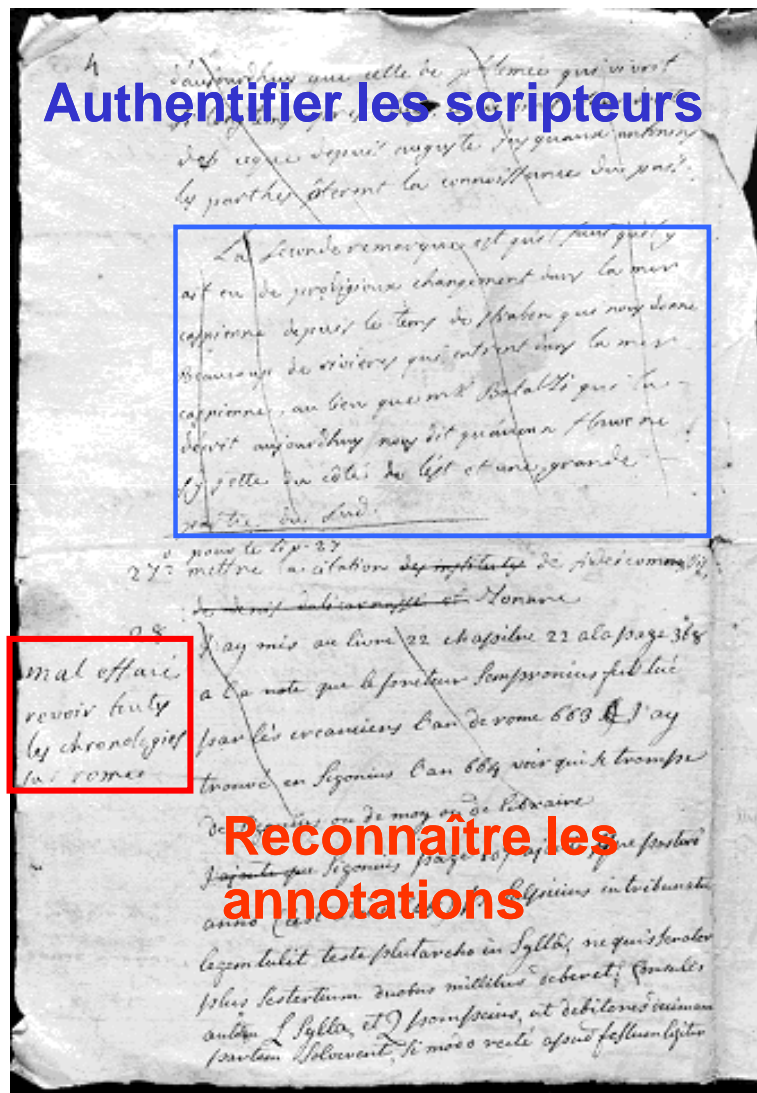 4
d'aujourdhuy que celle de ptolemee qui vivoit
Authentifier les scripteurs
depuis auguste jusquaux antonins
les parthes oterent la connoissance du pais.
La seconde remarque est quil faut quil y
ait eu de prodigieux changement dans la mer
caspienne depuis le tems de strabon qui nous donne
Beaucoup de rivieres qui entrent dans la mer
caspienne, au lieu que mr qui la
decrit aujourdhuy nous dit quaucun fleuve ne
sy jette du côté de lest et une grande
partie du sud.
pour le
27° mettre la citation des instituts de fideicommissis
de denis dalicarnasse et Zonare
28
J'ay mis au livre 22 chapitre 22 a la page 368
mal effacé
a la note que le preteur sempronius fut tué
revoir touts
par les creanciers l'an de rome 663 J'ay
les chronologies
trouvé en sigonius l'an 664 voir qui se trompe
sur rome
de sigonius ou de moy ou de libraire
Reconnaître les
J'ajoute que sigonius page
annotations
anno in tribunatu
legem tulit teste plutarcho in Sylla, ne quis senator
plus sestertium duobus millibus deberet, consules
autem L Sylla et Q pompeius, ut debitores
partem solverent, si modo recte apud festum legitur